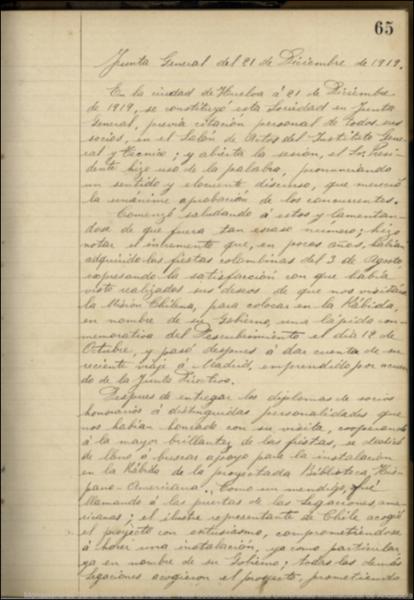 65
Junta General del 21 de Diciembre de 1919.
En la ciudad de Huelva á 21 de Diciembre
de 1919, se constituyó esta Sociedad en Junta
General, previa citación personal de todos sus
socios, en el Salón de Actos del Instituto Gene-
ral y Técnico; y abierta la sesión, el Sr. Presi-
dente hizo uso de la palabra, pronunciando
un sentido y elocuente discurso, que mereció
la unánime aprobación de los concurrentes.
Comenzó saludando á estos y lamentan-
dose de que fuera tan escaso número; hizo
notar el incremento que, en pocos años, habían
adquirido las fiestas colombinas del 3 de Agosto
expresando la satisfacción con que había
visto realizados sus deseos de que nos visitára
la Misión Chilena, para colocar en la Rábida,
en nombre de su Gobierno, una lápida con-
memorativa del Descubrimiento el día 12 de
Octubre, y pasó despues á dar cuenta de su
reciente viaje á Madrid, emprendido por acuer-
do de la Junta Directiva.
Despues de entregar los diplomas de socios
honorarios á distinguidas personalidades que
nos habian honrado con su visita, cooperando
á la mayor brillantez de las fiestas, se dedicó
de lleno á buscar apoyo para la instalación
en la Rábida de la proyectada Biblioteca His-
pano-Americana. Como un mendigo, fué
llamando á las puertas de las Legaciones ame-
ricanas; el ilustre representante de Chile acogió
el proyecto con entusiasmo, comprometiéndose
á hacer una instalación, ya como particular,
ya en nombre de su Gobierno; todas las demás
Legaciones acogieron el proyecto, prometiendo